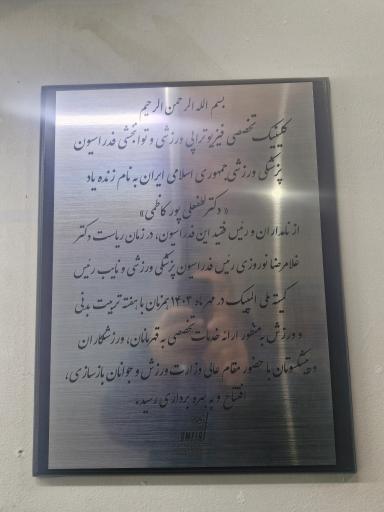 بسم الله الرحمن الرحیم
کلینیک تخصصی فیزیوتراپی ورزشی و توانبخشی فدراسیون
پزشکی ورزشی جمهوری اسلامی ایران به نام زنده یاد
«دکتر لطفعلی پورکاظمی»
از نامداران و رئیس فقید این فدراسیون، در زمان ریاست دکتر
غلامرضا نوروزی رئیس فدراسیون پزشکی ورزشی و نایب رئیس
کمیته ملی المپیک در مهر ماه ۱۴۰۳ همزمان با هفته تربیت بدنی
و ورزش به منظور ارائه خدمات تخصصی به قهرمانان، ورزشکاران
و پیشکسوتان با حضور مقام عالی وزارت ورزش و جوانان بازسازی،
افتتاح و به بهره برداری رسید.